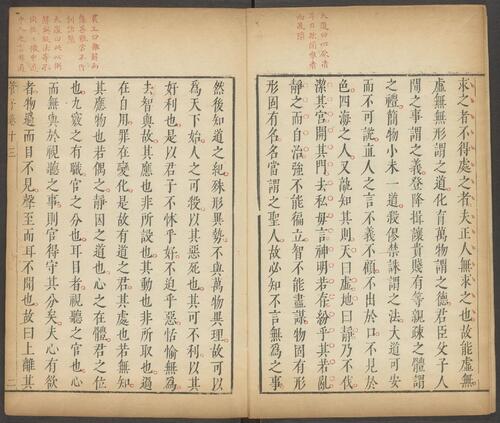 求之者不得處之者夫正人無求之也故能虛無
虛無無形謂之道化育萬物謂之德君臣父子人
間之事謂之義登降揖讓貴賤有等親疎之體謂
之禮簡物小未一道殺僇禁誅謂之法大道可安
而不可說直人之言不義不顧不出於口不見於
色四海之人又孰知其則天曰虛地曰靜乃不伐
潔其宮開其門去私毋言神明若存紛乎其若亂
靜之而自治強不能徧立智不能盡謀物固有形
形固有名名當謂之聖人故必知不言無為之事
然後知道之紀殊形異勢不與萬物異理故可以
為天下始人之可殺以其惡死也其可不利以其
好利也是以君子不怵乎好不迫乎惡恬愉無為
去智與故其應也非所設也其動也非所取也過
在自用罪在變化是故有道之君其處也若無知
其應物也若偶之靜因之道也心之在體君之位
也九竅之有職官之分也耳目者視聽之官也心
而無與於視聽之事則官得守其分矣夫心有欲
者物過而目不見聲至而耳不聞也故曰上離其
管子卷十三
二